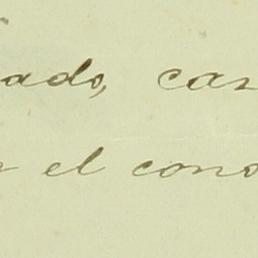 ado, car
el cono